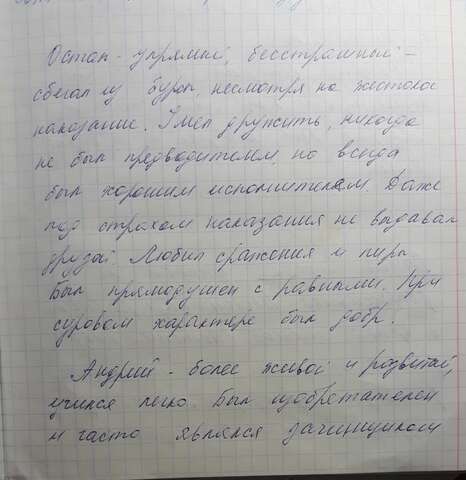 Остап - упрямый, бесстрашный -
сбегал из бурсы, несмотря на жестокое
наказание. Умел дружить, никогда
не был предводителем, но всегда
был хорошим исполнителем. Даже
под страхом наказания не выдавал
друзей. Любил сражения и пиры.
Был прямодушен с равными. При
суровом характере был добр.
Андрий - более живой и развитый,
учился легко. Был изобретателен
и часто являлся зачинщиком